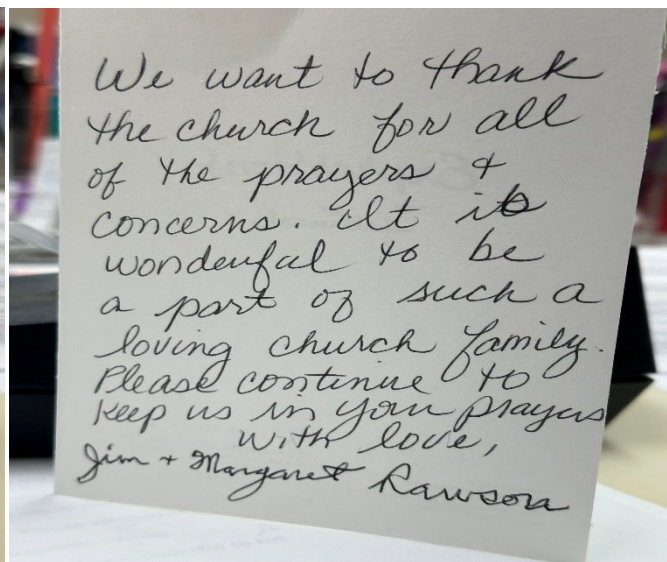 We want to thank
the church for all
of the prayers &
concerns. It is
wonderful to be
a part of such a
loving church family.
Please continue to
keep us in your prayers
with love,
Jim + Margaret Rawson